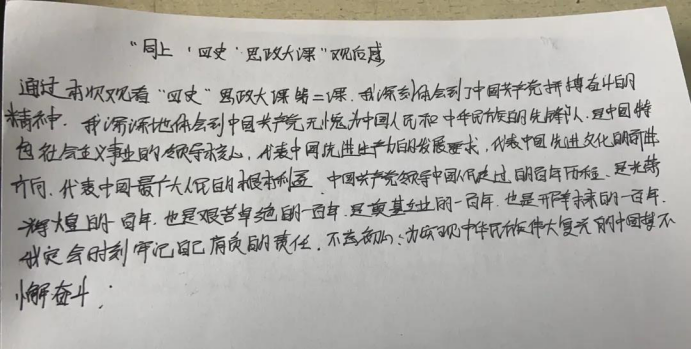 “同上‘四史’思政大课”观后感
通过本次观看“四史”思政大课第二课，我深刻体会到了中国共产党拼搏奋斗的
精神，我深深地体会到中国共产党无愧为中国人民和中华民族的先锋队，是中国特
色社会主义事业的领导核心，代表中国先进生产力的发展要求，代表中国先进文化的前进
方向，代表中国最广大人民的根本利益，中国共产党领导中国人民走过的百年历程，是光辉
辉煌的一百年，也是艰苦卓绝的一百年，是奠基立业的一百年，也是开辟未来的一百年。
我定会时刻牢记自己肩负的责任，不忘初心，为实现中华民族伟大复兴的中国梦不
懈奋斗.